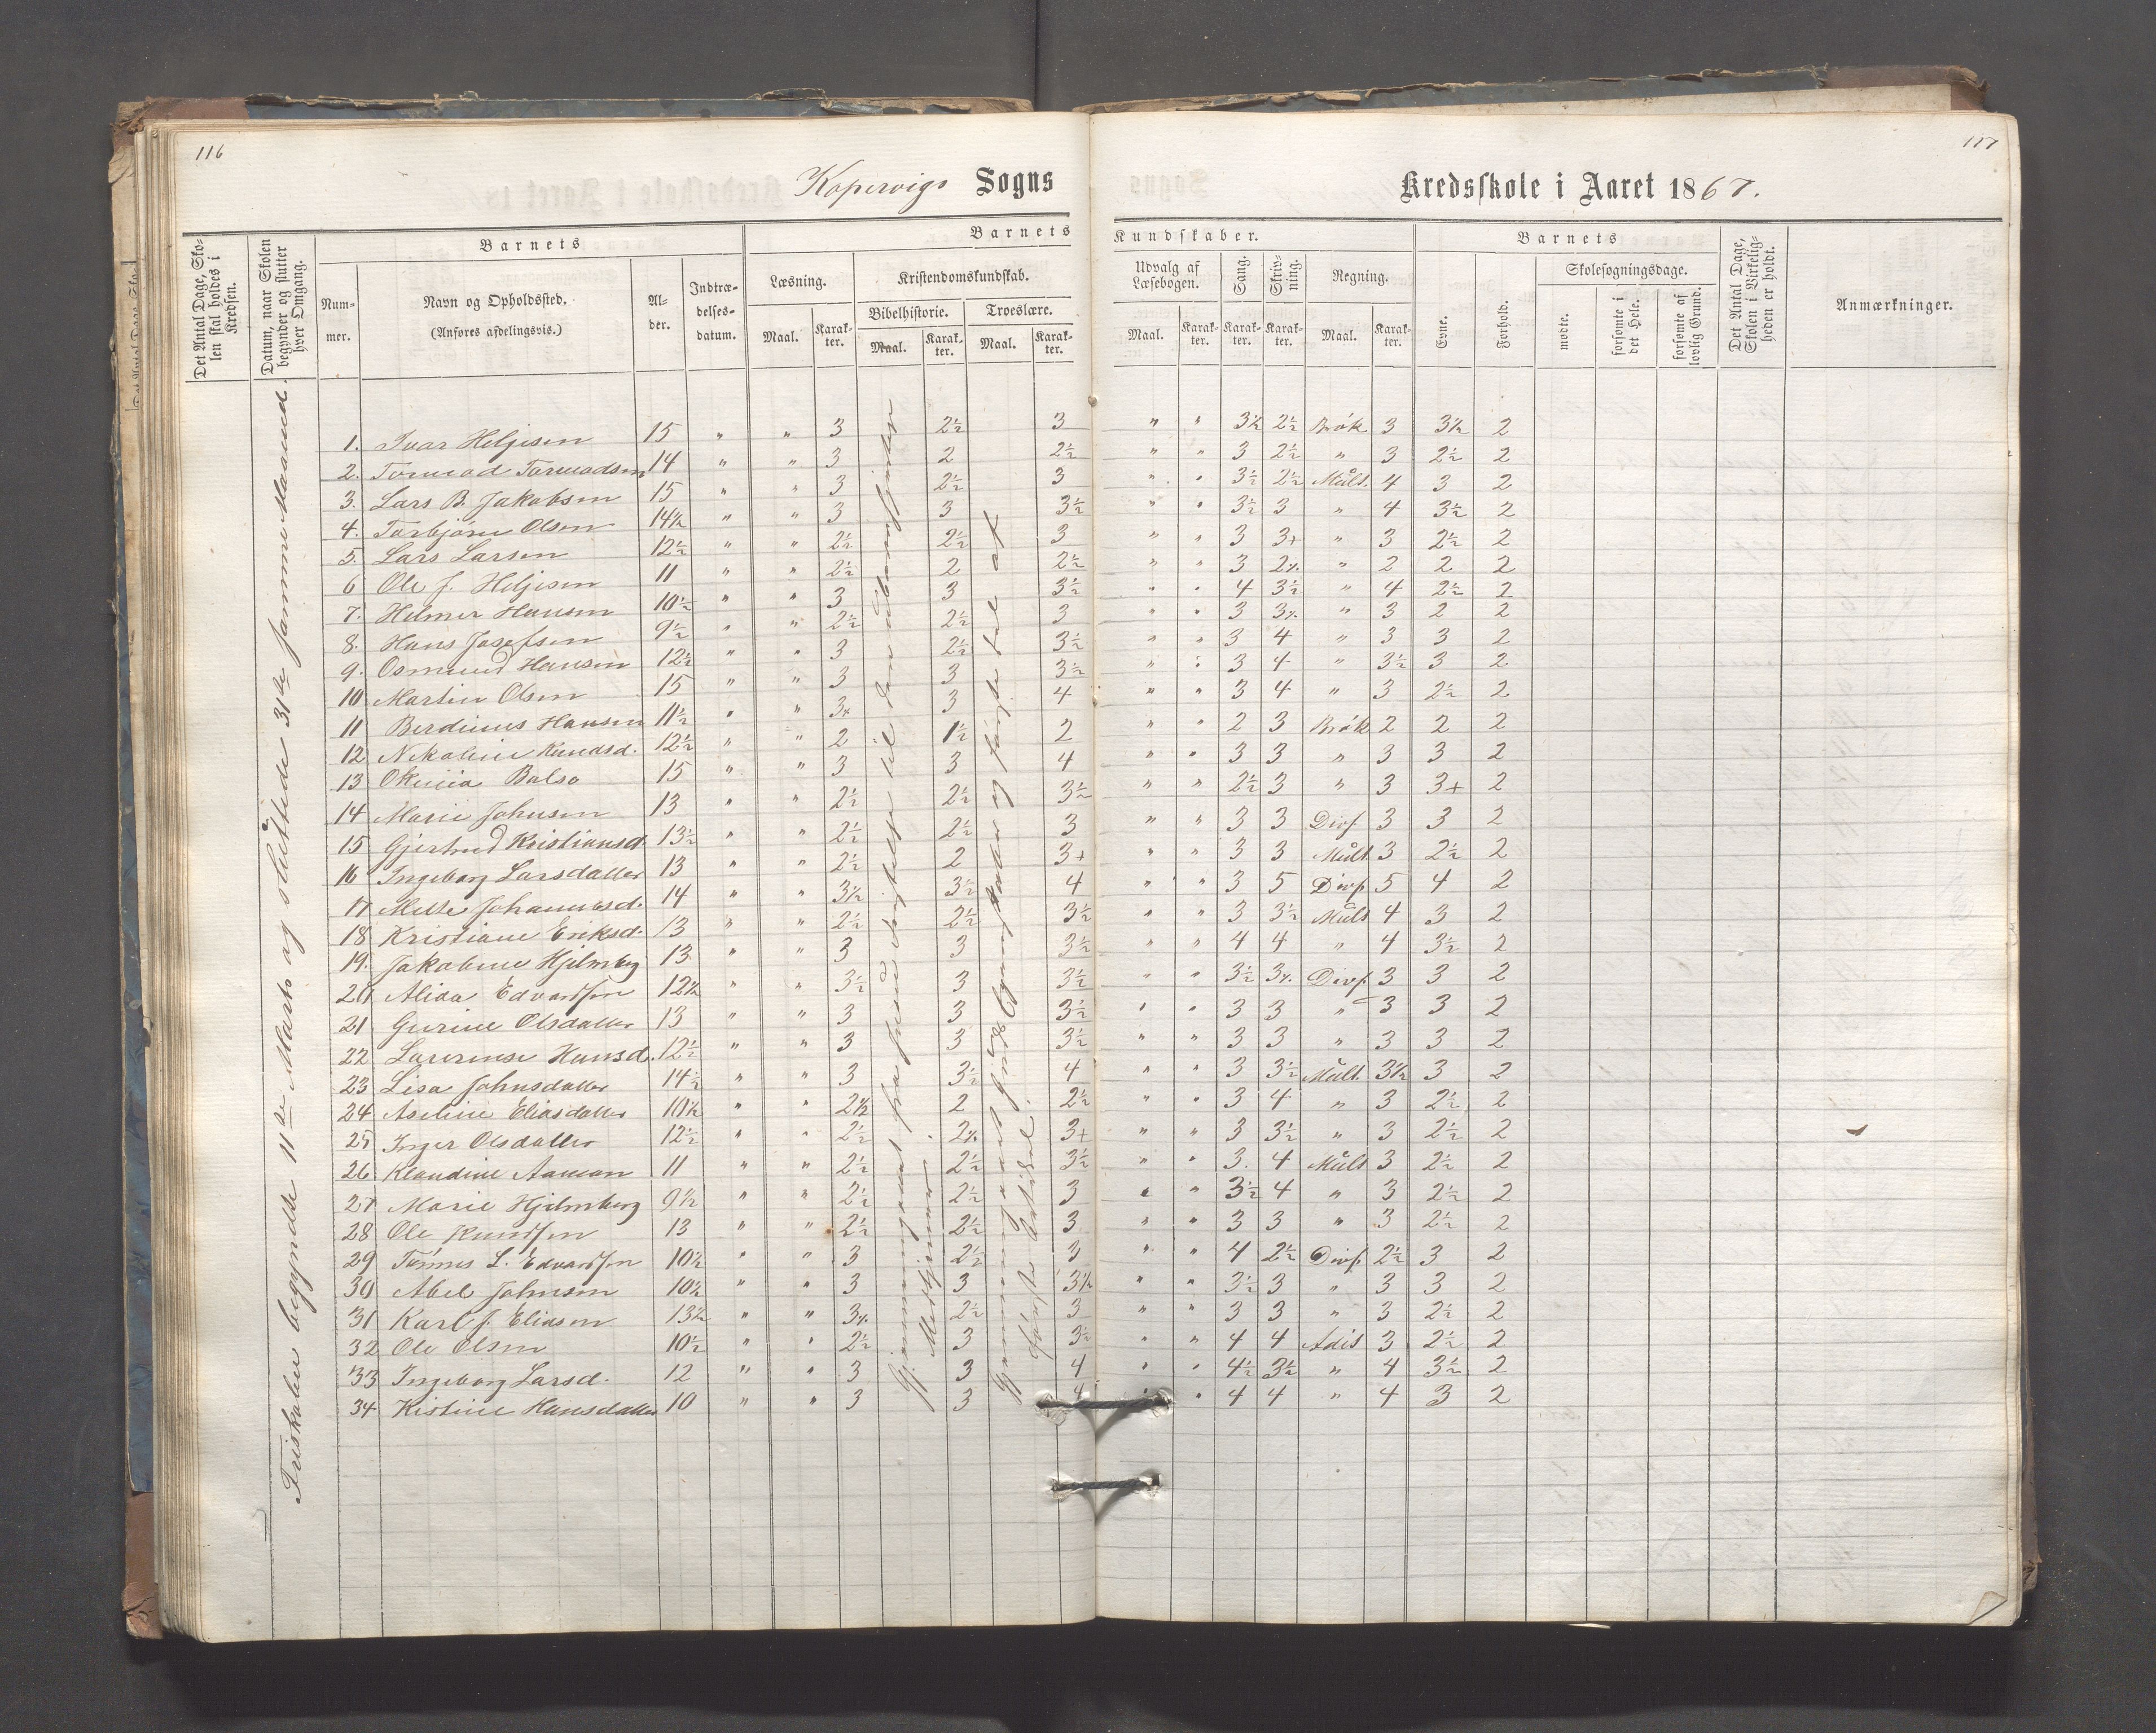 116
117
Kopervigs Sogns
Kredsskole i Aaret 1867.
Det Antal Dage, Skolen skal holdes i Kredsen.
Datum, naar Skolen begynder og slutter hver Omgang.
Barnets
Nummer.
Navn og Opholdssted.
(Anføres afdelingsvis.)
Alder.
Indtrædelsesdatum.
Barnets Kundskaber.
Læsning.
Maal. Karakter.
Kristendomskundskab.
Bibelhistorie.
Maal. Karakter.
Troeslære.
Maal. Karakter.
Udvalg af Læsebogen.
Maal. Karakter.
Sang.
Karakter.
Skrivning.
Karakter.
Regning.
Maal. Karakter.
Barnets
Evne.
Forhold.
Skolesøgningsdage.
mødte.
forsømte i det Hele.
forsømte af lovlig Grund.
Det Antal Dage, Skolen i Virkeligheden er holdt.
Anmærkninger.
Friskolen begyndte 11te Marts og sluttede 31te samme Maaned.
1. Ivar Heljesen 15 " " 3 2½ 3 " " 3½ 2½ Brök 3 3½ 2
2. Tormod Tormodsen 14 " " 3 2 2½ " " 3 2½ " 3 2½ 2
3. Lars B. Jakobsen 15 " " 3 2½ 3 " " 3½ 2½ Mult. 4 3 2
4. Torbjörn Olsen 14½ " " 3 3 3½ " " 3½ 3 " 4 3½ 2
5. Lars Larsen 12½ " " 2½ 2½ 3 " " 3 3+ " 3 2½ 2
6 Ole J. Heljesen 11 " " 2½ 2 2½ " " 3 2½ " 2 2 2
7. Helmer Hansen 10½ " " 3 3 3½ " " 4 3½ " 4 2½ 2
8. Hans Josefsen 9½ " " 2½ 2½ 3 " " 3 3½ " 3 2 2
9. Osmund Hansen 12½ " " 3 2½ 3½ " " 3 4 " 3 3 2
10 Martin Olsen 15 " " 3 3 3½ " " 3 4 " 3½ 3 2
11 Berdinus Hansen 11½ " " 3+ 3 4 " " 3 4 " 3 2½ 2
12 Nikoline Knudsd. 12½ " " 2 1½ 2 " " 2 3 Brök 2 2 2
13 Balso 15 " " 3 3 4 " " 3 3 " 3 3 2
14 Marie Johnsen 13 " " 2½ 2½ 3½ " " 2½ 3 " 3 3+ 2
15 Gjertrud Kristiansd. 13½ " " 2½ 2½ 3 " " 3 3 Divs. 3 3 2
16 Ingeborg Larsdatter 13 " " 2½ 2 3+ " " 3 3 Mult. 3 2½ 2
17 Mette Johannesd. 14 " " 3½ 3½ 4 " " 3 5 Divs. 5 4 2
18 Kristiane Eriksd. 13 " " 2½ 2½ 3½ " " 3 3½ Mult 4 3 2
19. Jakobine Hjelmberg 13 " " 3 3 3½ " " 4 4 " 4 3½ 2
20 Alida Edvardsen 12½ " " 3½ 3 3½ " " 3½ 3½ Divs. 3 3 2
21 Gurine Olsdatter 13 " " 3 3 3½ " " 3 3 " 3 3 2
22 Laverense Hansd. 12½ " " 3 3 3½ " " 3 3 " 3 3 2
23 Lisa Johnsdatter 14½ " " 3 3½ 4 " " 3 3½ Mult. 3½ 3 2
24 Aseline Eliasdatter 10½ " " 2½ 2 2½ " " 3 4 " 3 2½ 2
25 Inger Olsdatter 12½ " " 2½ 2½ 3+ " " 3 3½ " 3 2½ 2
26 Klaudine Aamon 11 " " 2½ 2½ 3½ " " 3. 4 Mult 3 2½ 2
27 Marie Hjelmberg 9½ " " 2½ 2½ 3 " " 3½ 4 " 3 2½ 2
28 Ole Knudsen 13 " " 2½ 2½ 3 " " 3 3 " 3 2½ 2
29 Tönnes L. Edvardsen 10½ " " 3 2½ 3 " " 4 2½ Divs 2½ 3 2
30 Abel Johnsen 10½ " " 3 3 3½ " " 3½ 3 " 3 3 2
31 Karl J. Eliasen 13½ " " 3½ 2½ 3 " " 3 3 " 3 2½ 2
32 Ole Olsen 10½ " " 2½ 3 3½ " " 4 4 Adis 3 2½ 2
33 Ingeborg Larsd. 12 " " 3 3 4 " " 4½ 3½ " 4 3½ 2
34 Kistine Hansdatter 10 " " 3 3 4 " " 4 4 " 4 3 2
Gjennemgaaet fra